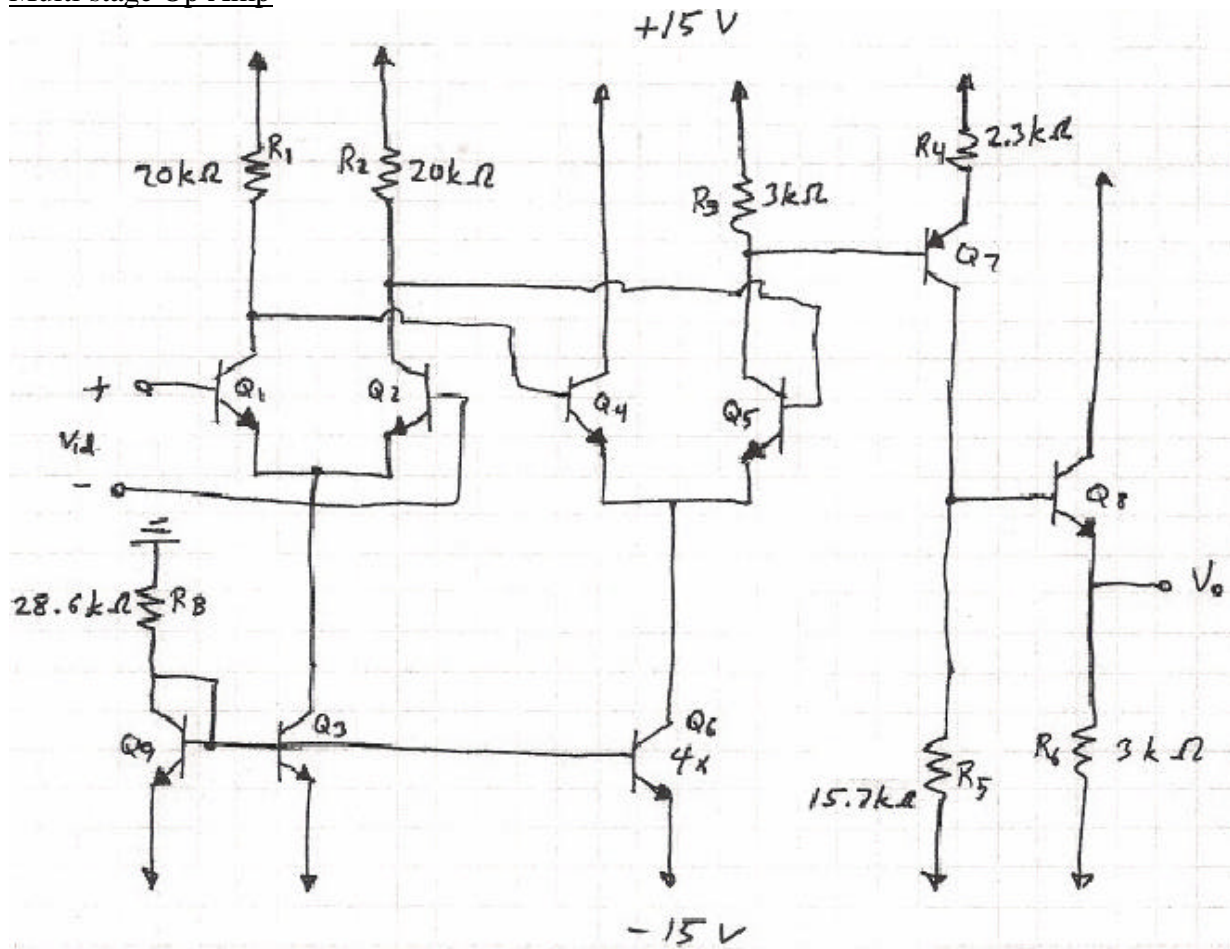 Multi-stage Op Amp
+15 V
R1
20kΩ
R2
20kΩ
R3
3kΩ
R4
2.3kΩ
Q7
+
Q1
Q2
Q4
Q5
Vid
-
Q8
Vo
28.6kΩ
RB
Q9
Q3
Q6
4x
15.7kΩ
R5
R6
3kΩ
-15 V